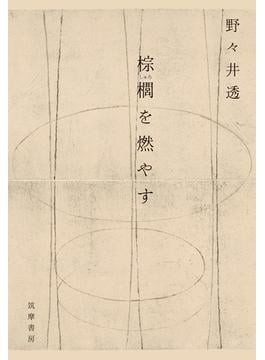 野々井透
棕櫚を燃やす
しゅろ
筑摩書房